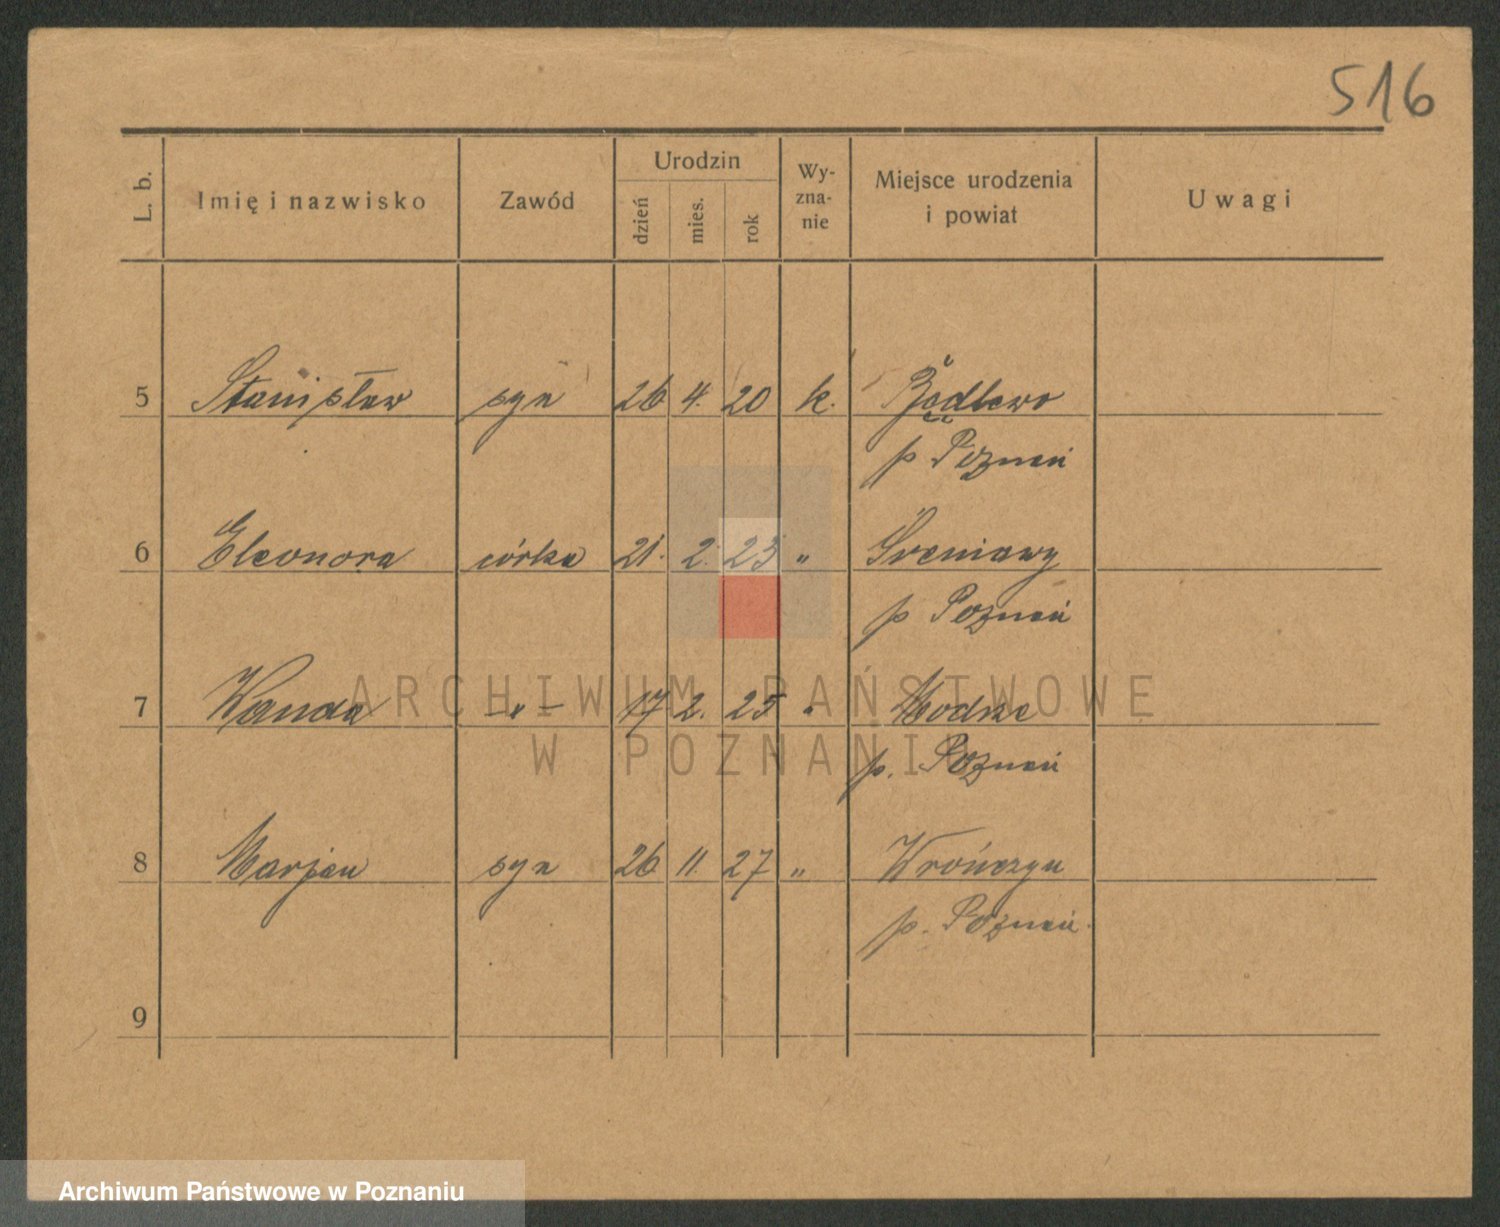 516
L. b. Imię i nazwisko Zawód Urodzin dzień mies. rok Wy-zna-nie Miejsce urodzenia i powiat Uwagi
5 Stanisław syn 26 4. 20 k.
p Poznań
6 Eleonora córka 21. 2. 23 " Sreniawy
p Poznań
7 Wanda —„— 17 2. 25 " Modrze
p. Poznań
8 Marjan syn 26 11. 27 " Wrończyn
p. Poznań.
9
ARCHIWUM PAŃSTWOWE
W POZNANIU
Archiwum Państwowe w Poznaniu